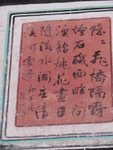 隱〻飛橋隔野
煙石磯西畔問
漁船桃花盡日
隨流水洞在清
溪何處邊